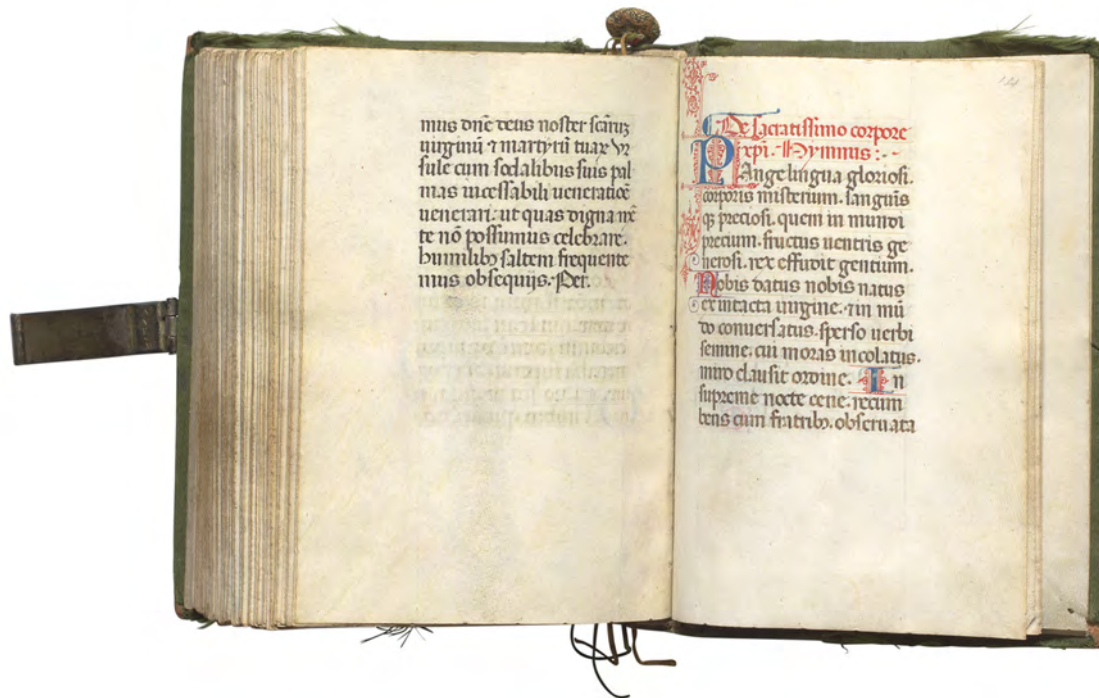 mus dn̄e deus noster sc̄aruʒ
uirginū ⁊ martyrū tuaꝝ Vr
sule cum sodalibus suis pal
mas incessabili ueneratiōē
uenerari. ut quas digna mē
te nō possumus celebrare.
humilibꝫ saltem frequente
mus obsequijs. Per.
121
De sacratissimo corpore
xp̄i. Hymnus :·
PAnge lingua gloriosi.
corporis misterium. sanguīs
qꝫ preciosi. quem in mundi
precium. fructus uentris ge
nerosi. rex effudit gentium.
Nobis datus nobis natus
ex intacta uirgine. ⁊ in mū
do conuersatus. sperso uerbi
semine. cui moras incolatus.
miro clausit ordine. In
supreme nocte cene. recum
bens cum fratribꝫ. obseruata